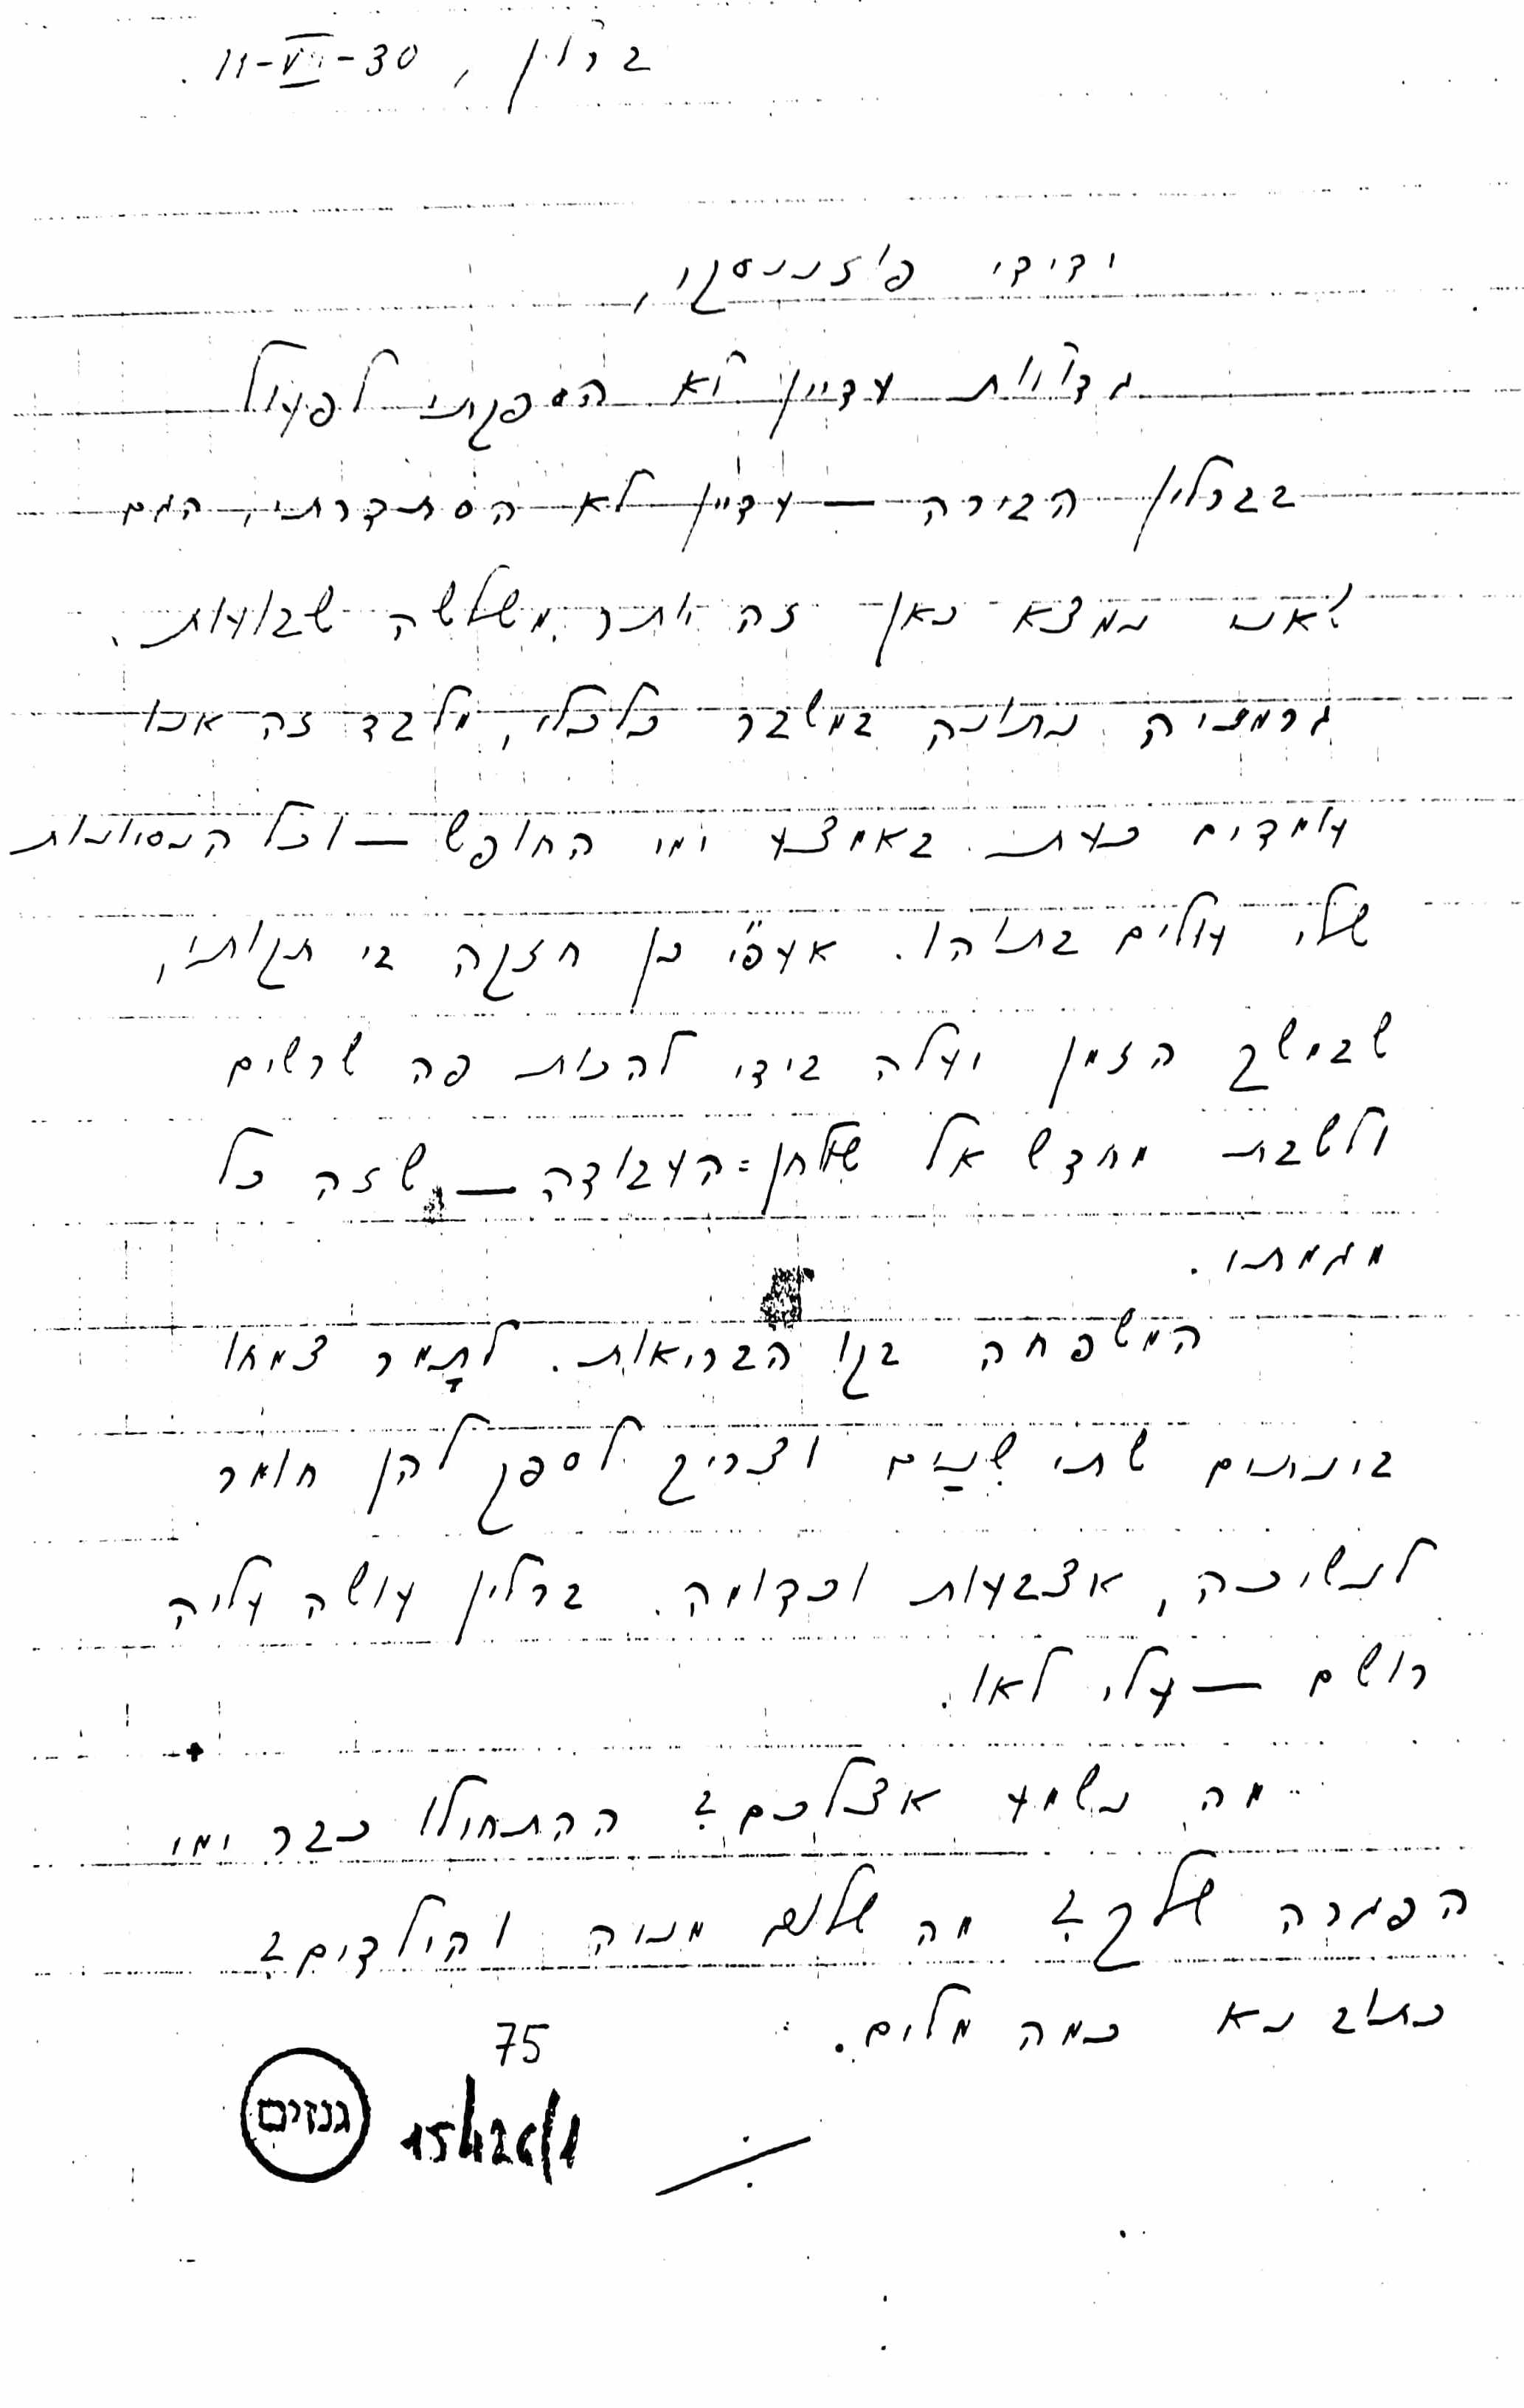 ברלין, 11-VII-30.
ידידי פוזננסקי,
גדולות עדיין לא הספקתי לפעול
בברלין הבירה — עדיין לא הסתדרתי, הגם
שאני נמצא כאן זה יותר משלשה שבועות.
גרמניה נתונה במשבר כלכלי, מלבד זה אנו
עומדים כעת באמצע ימי החופש — וכל הנסיונות
שלי עולים בתוהו. אעפ״י כן חזקה בי תקותי,
שבמשך הזמן יעלה בידי להכות פה שרשים
ולשבת מחדש אל שולחן=העבודה — שזה כל
מגמתי.
המשפחה בקו הבריאות. לתָמָר צמחו
בינתים שתי שִנַיִם וצריך לספק להן חומר
לנשיכה, אצבעות וכדומה. ברלין עושה עליה
רושם — עלי לאו.
מה נשמע אצלכם? ההתחילו כבר ימי
הפגרה שלך? מה שלום מניה והילדים?
כתוב נא כמה מלים.
75
גנזים
15426/1